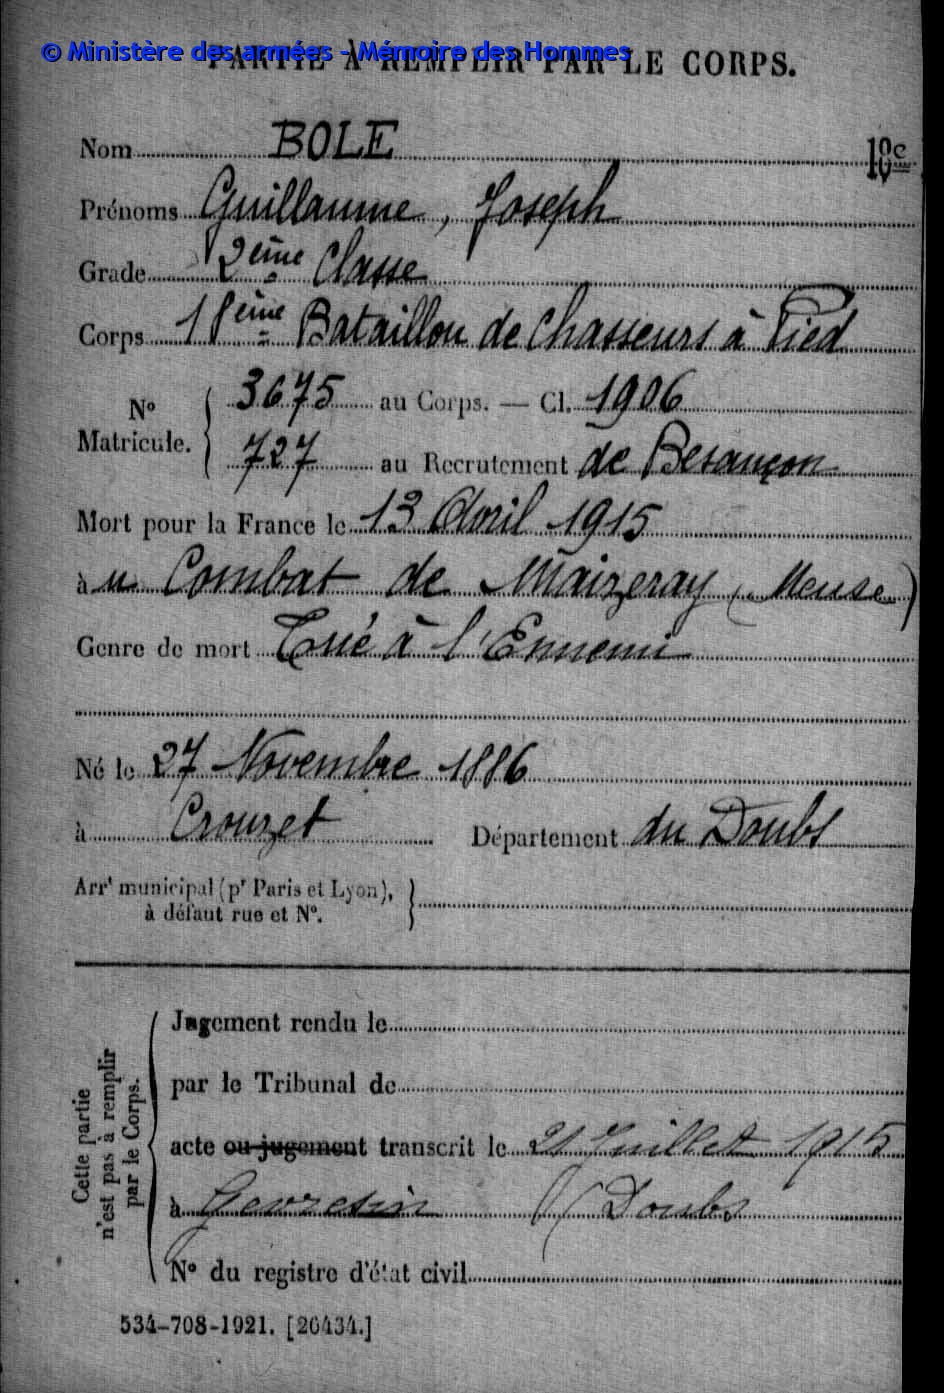 © Ministère des armées - Mémoire des Hommes
PARTIE À REMPLIR PAR LE CORPS.
Nom BOLE
Prénoms Guillaume, Joseph
Grade 2ème Classe
Corps 18ème Bataillon de Chasseurs à Pied
N° Matricule. { 3675 au Corps. — Cl. 1906
727 au Recrutement de Besançon
Mort pour la France le 13 Avril 1915
à u Combat de Maizeray (Meuse)
Genre de mort Tué à l'Ennemi
Né le 27 Novembre 1886
à Crouzet Département du Doubs
Arrt municipal (pr Paris et Lyon), }
à défaut rue et N°.
Cette partie
n'est pas à remplir
par le Corps.
Jugement rendu le
par le Tribunal de
acte ou jugement transcrit le 21 Juillet 1915
à Gevresin (Doubs
N° du registre d'état civil
534-708-1921. [26434.]